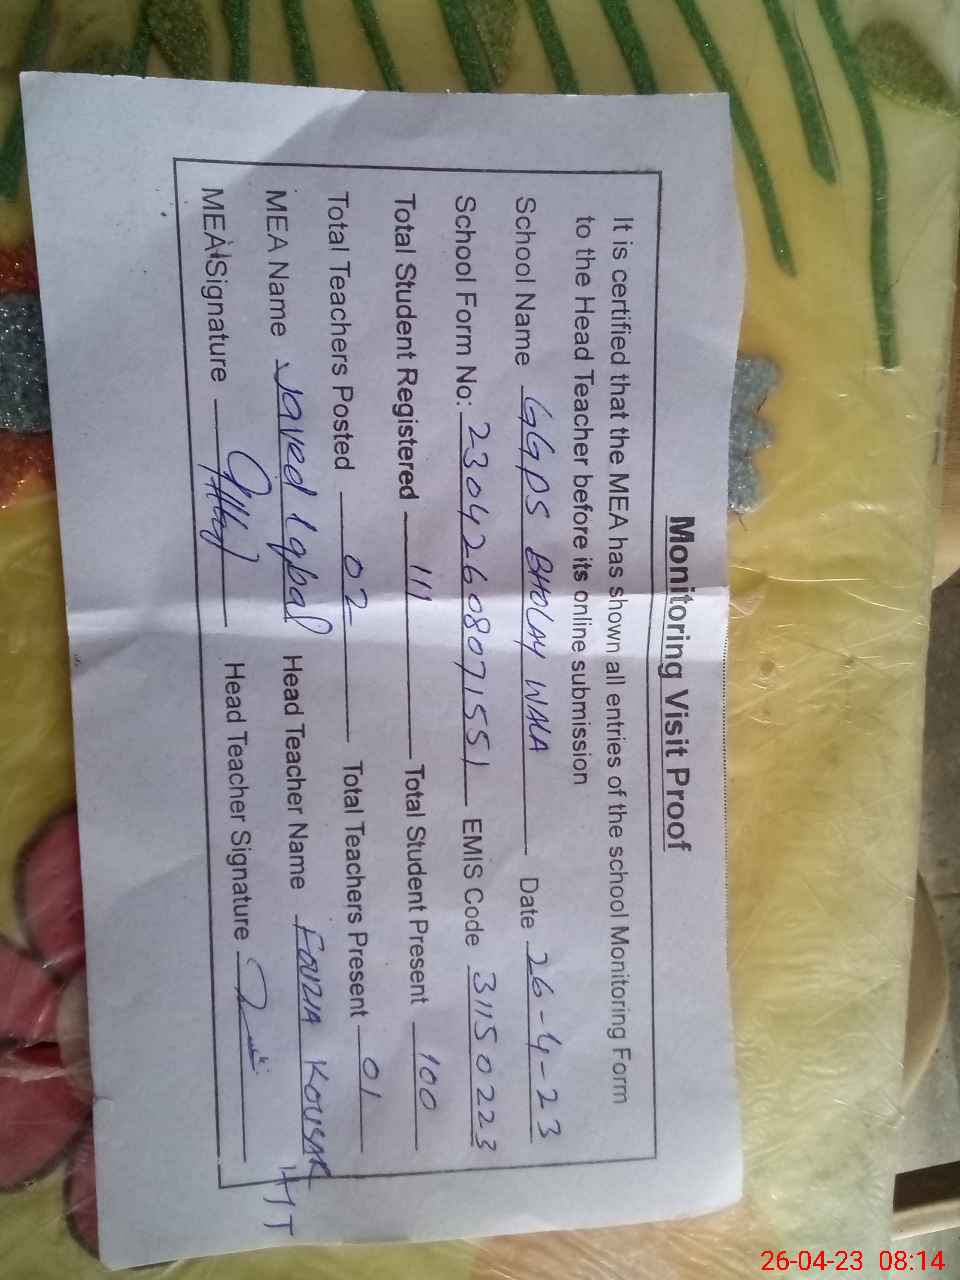 Monitoring Visit Proof
It is certified that the MEA has shown all entries of the school Monitoring Form
to the Head Teacher before its online submission
School Name GGPS BHOLAY WALA Date 26-4-23
School Form No: 230426080071551 EMIS Code 31150223
Total Student Registered 111 Total Student Present 100
Total Teachers Posted 02 Total Teachers Present 01
MEA Name Javed Iqbal Head Teacher Name Fouzia Kousar HT
MEA Signature Head Teacher Signature
26-04-23 08:14